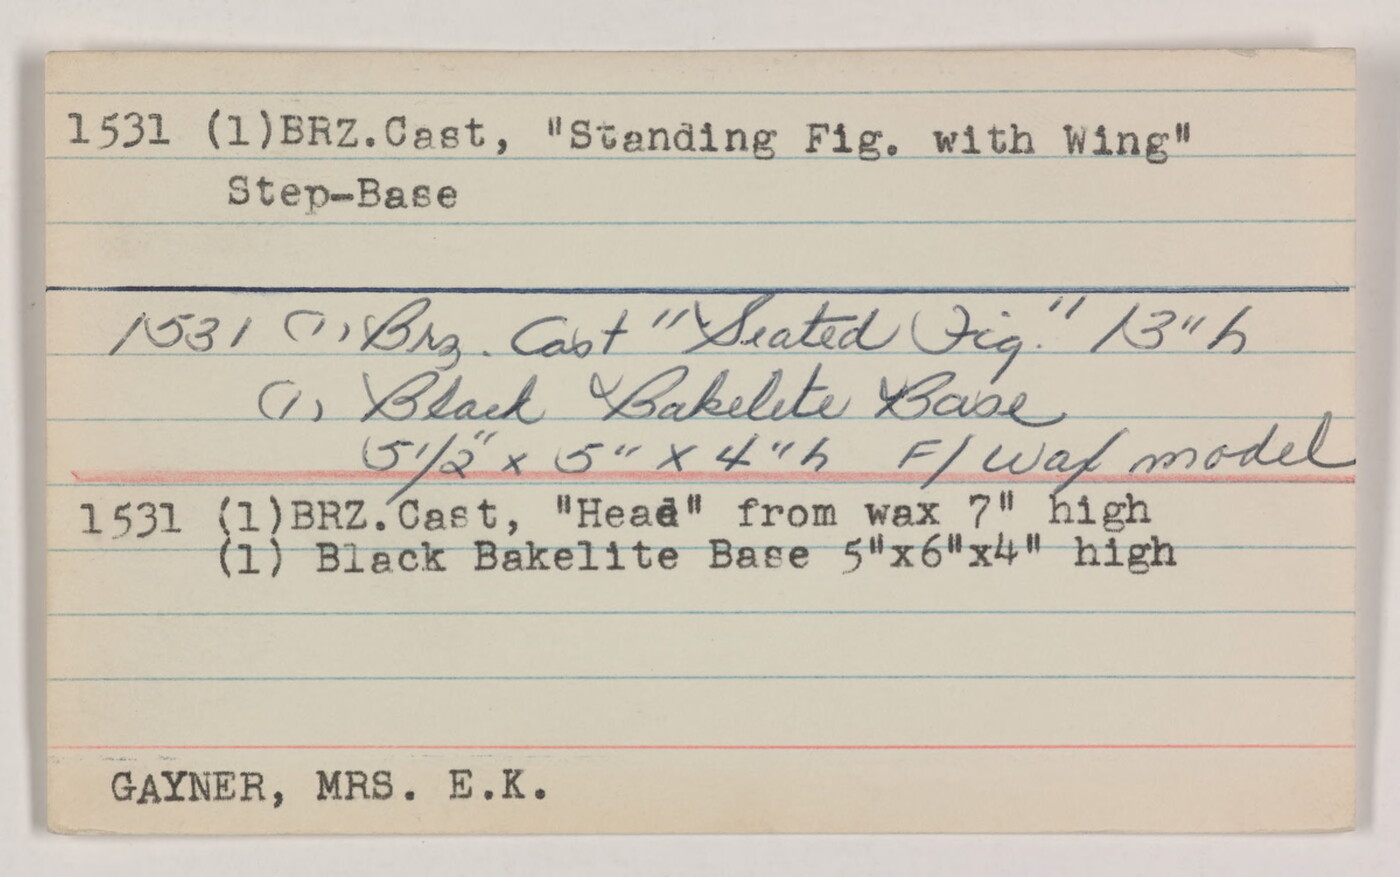 1531 (1)BRZ.Cast, "Standing Fig. with Wing"
Step-Base
1531 (1) Brz. Cast "Seated Fig." 13"h
(1) Black Bakelite Base
5 1/2" x 5" x 4"h F/ wax model
1531 (1)BRZ.Cast, "Head" from wax 7" high
(1) Black Bakelite Base 5"x6"x4" high
GAYNER, MRS. E.K.